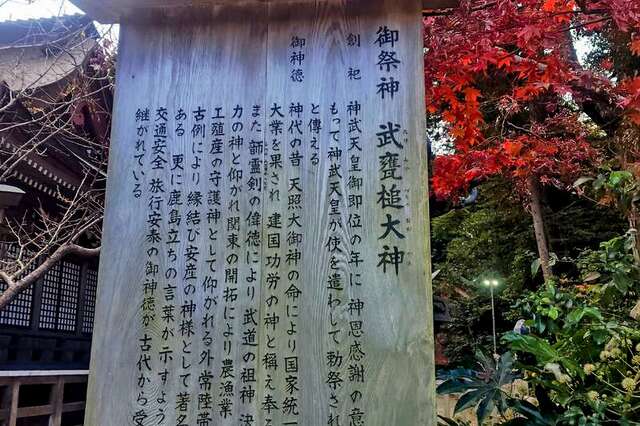 御祭神 武甕槌大神
創祀 神武天皇御即位の年に 神恩感謝の意
もって神武天皇が使を遣わして勅祭され
と傳える
御神徳 神代の昔 天照大御神の命により国家統一
大業を果され 建国功労の神と稱え奉る
また韴霊剣の偉徳により 武道の祖神 決
力の神と仰がれ関東の開拓により 農漁業
工殖産の守護神として仰がれる外常陸帯
古例により縁結び安産の神様として著名
ある 更に鹿島立ちの言葉が示すよう
交通安全 旅行安泰の御神徳が 古代から受
継がれている